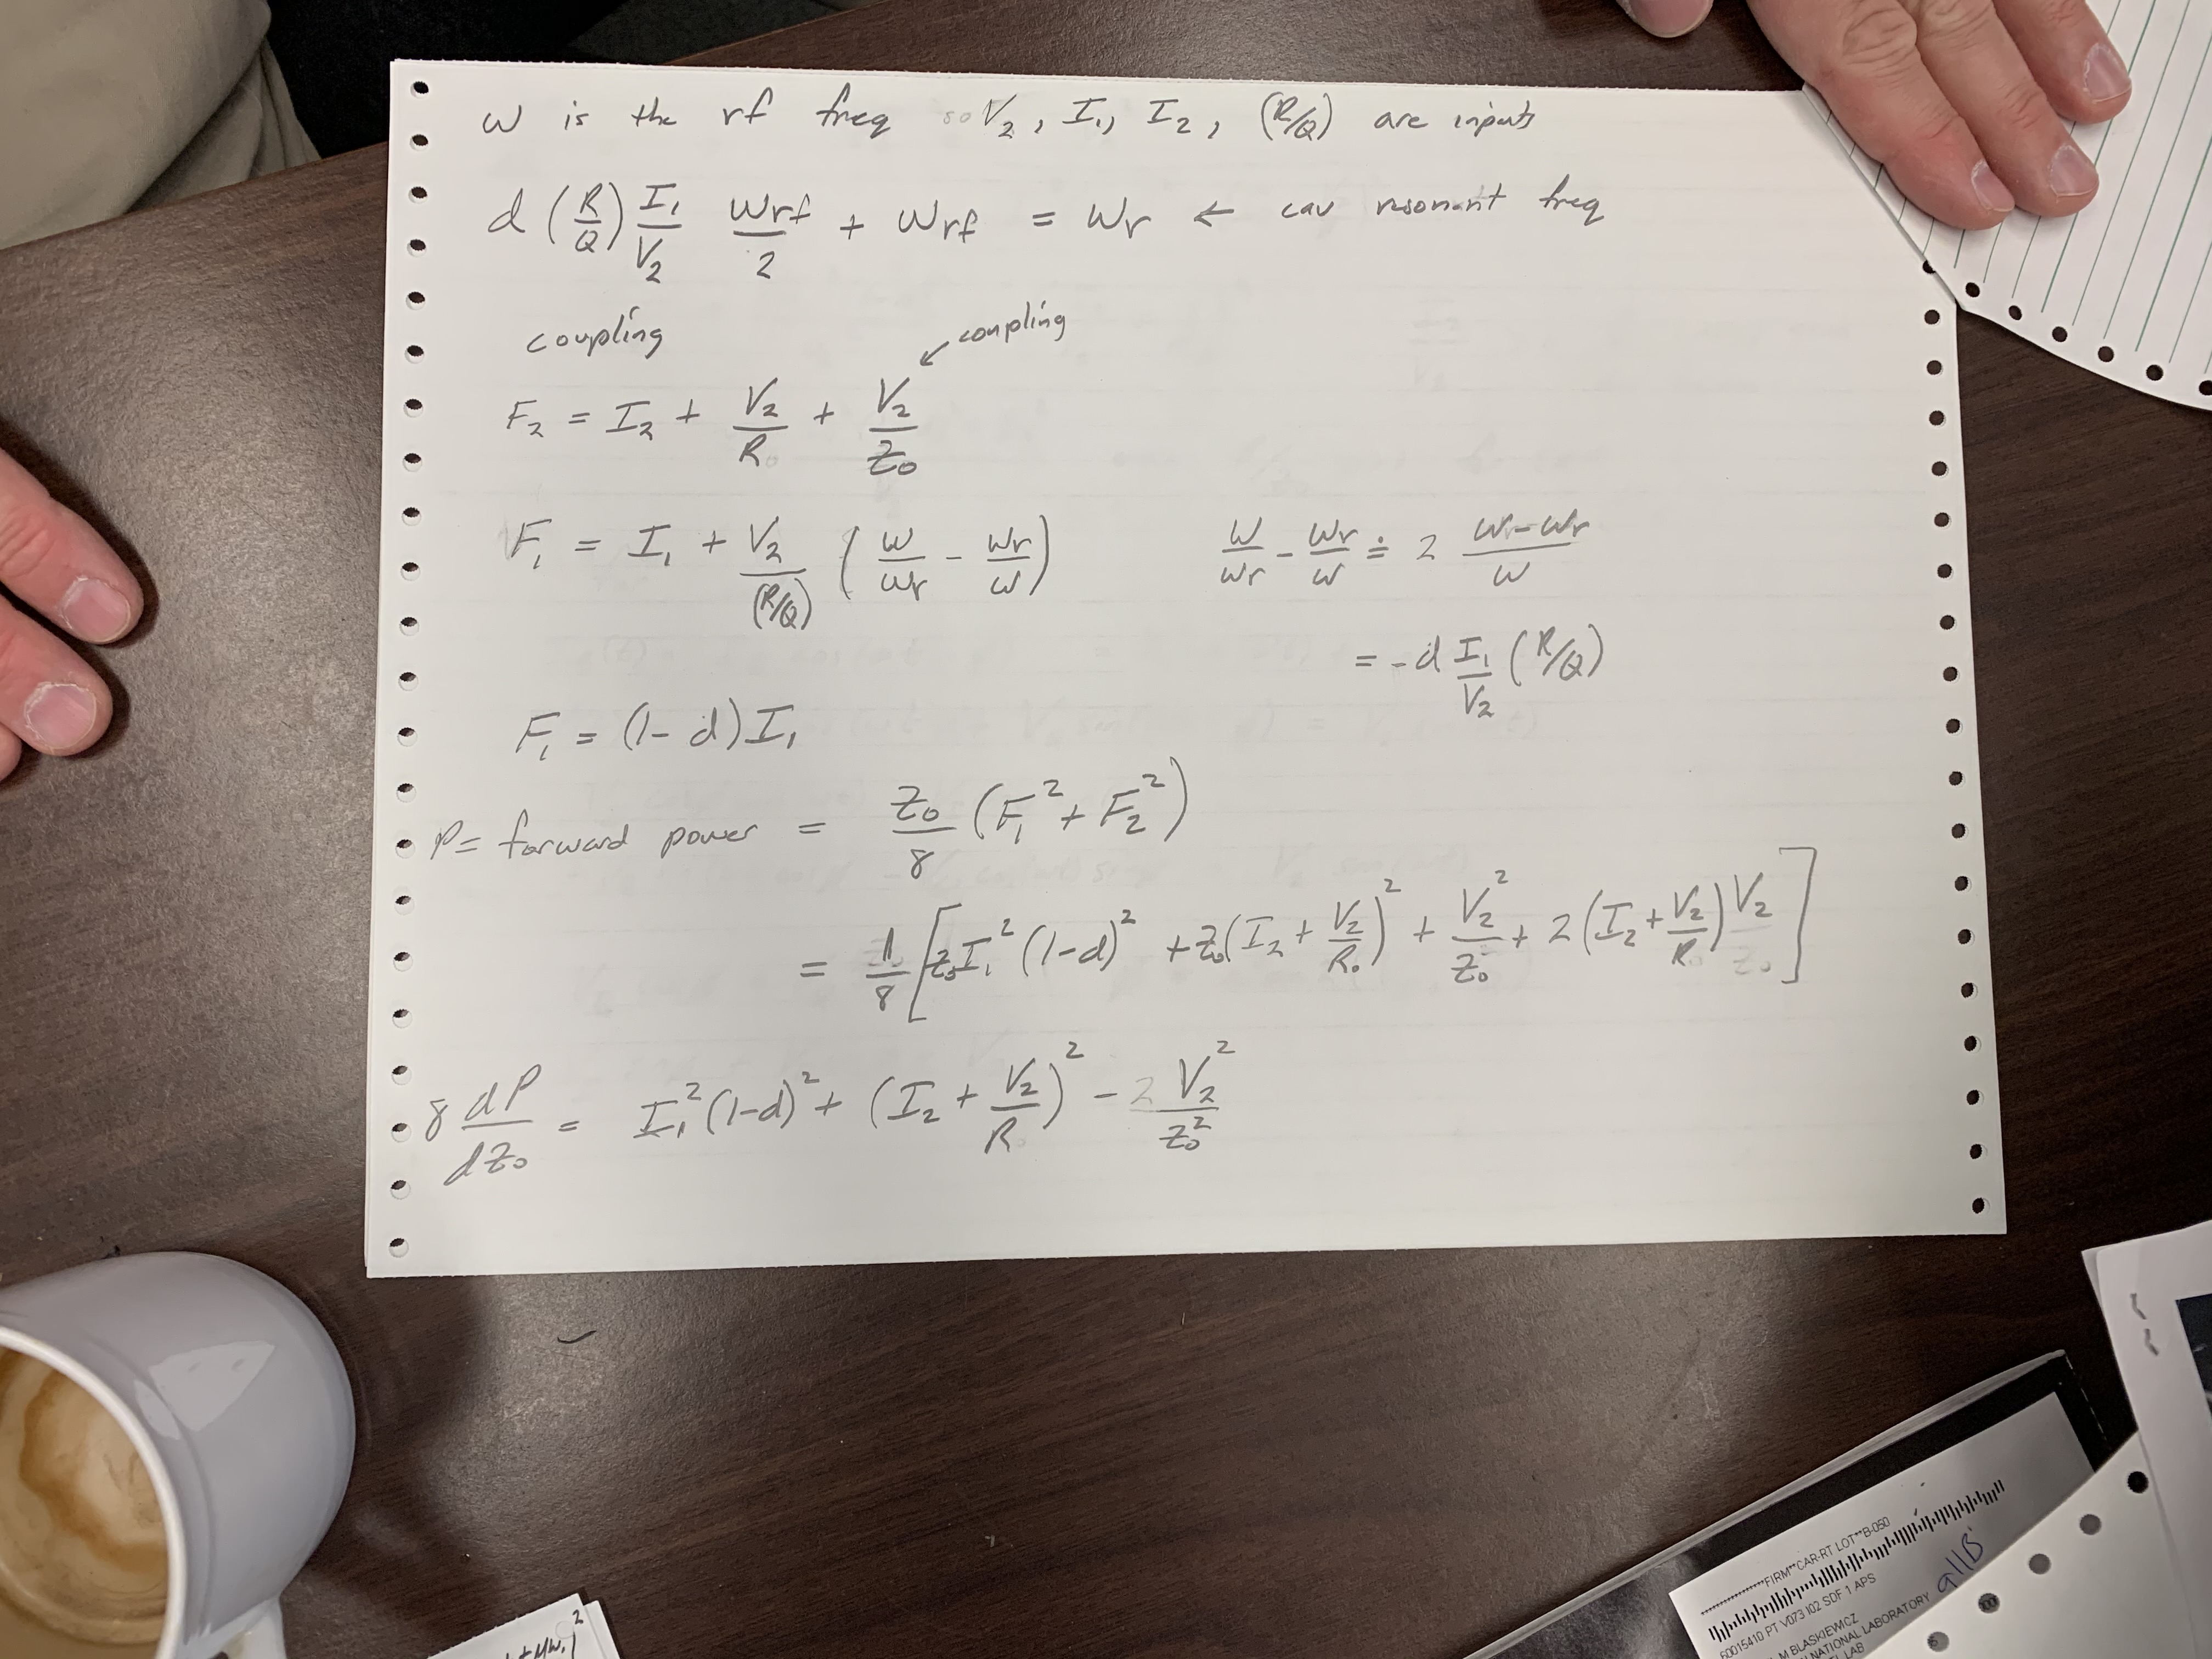 ω is the rf freq so V₂, I₁, I₂, (R/Q) are inputs
d (R/Q) I₁/V₂ ωrf/2 + ωrf = ωr ← cav resonant freq
coupling
↙ coupling
F₂ = I₂ + V₂/R + V₂/Z₀
F₁ = I₁ + V₂/(R/Q) (ω/ωr - ωr/ω)
ω/ωr - ωr/ω ≐ 2 (ω-ωr)/ω
= -d I₁/V₂ (R/Q)
F₁ = (1-d)I₁
P = forward power = Z₀/8 (F₁² + F₂²)
= 1/8 [Z₀I₁²(1-d)² + Z₀(I₂ + V₂/R₀)² + V₂²/Z₀ + 2(I₂ + V₂/R)V₂]
8 dP/dZ₀ = I₁²(1-d)² + (I₂ + V₂/R)² - V₂²/Z₀²
FIRM**CAR-RT LOT**B-050
60015410 PT V073 I02 SDF 1 APS
M BLASKIEWICZ
NATIONAL LABORATORY
LAB
911B